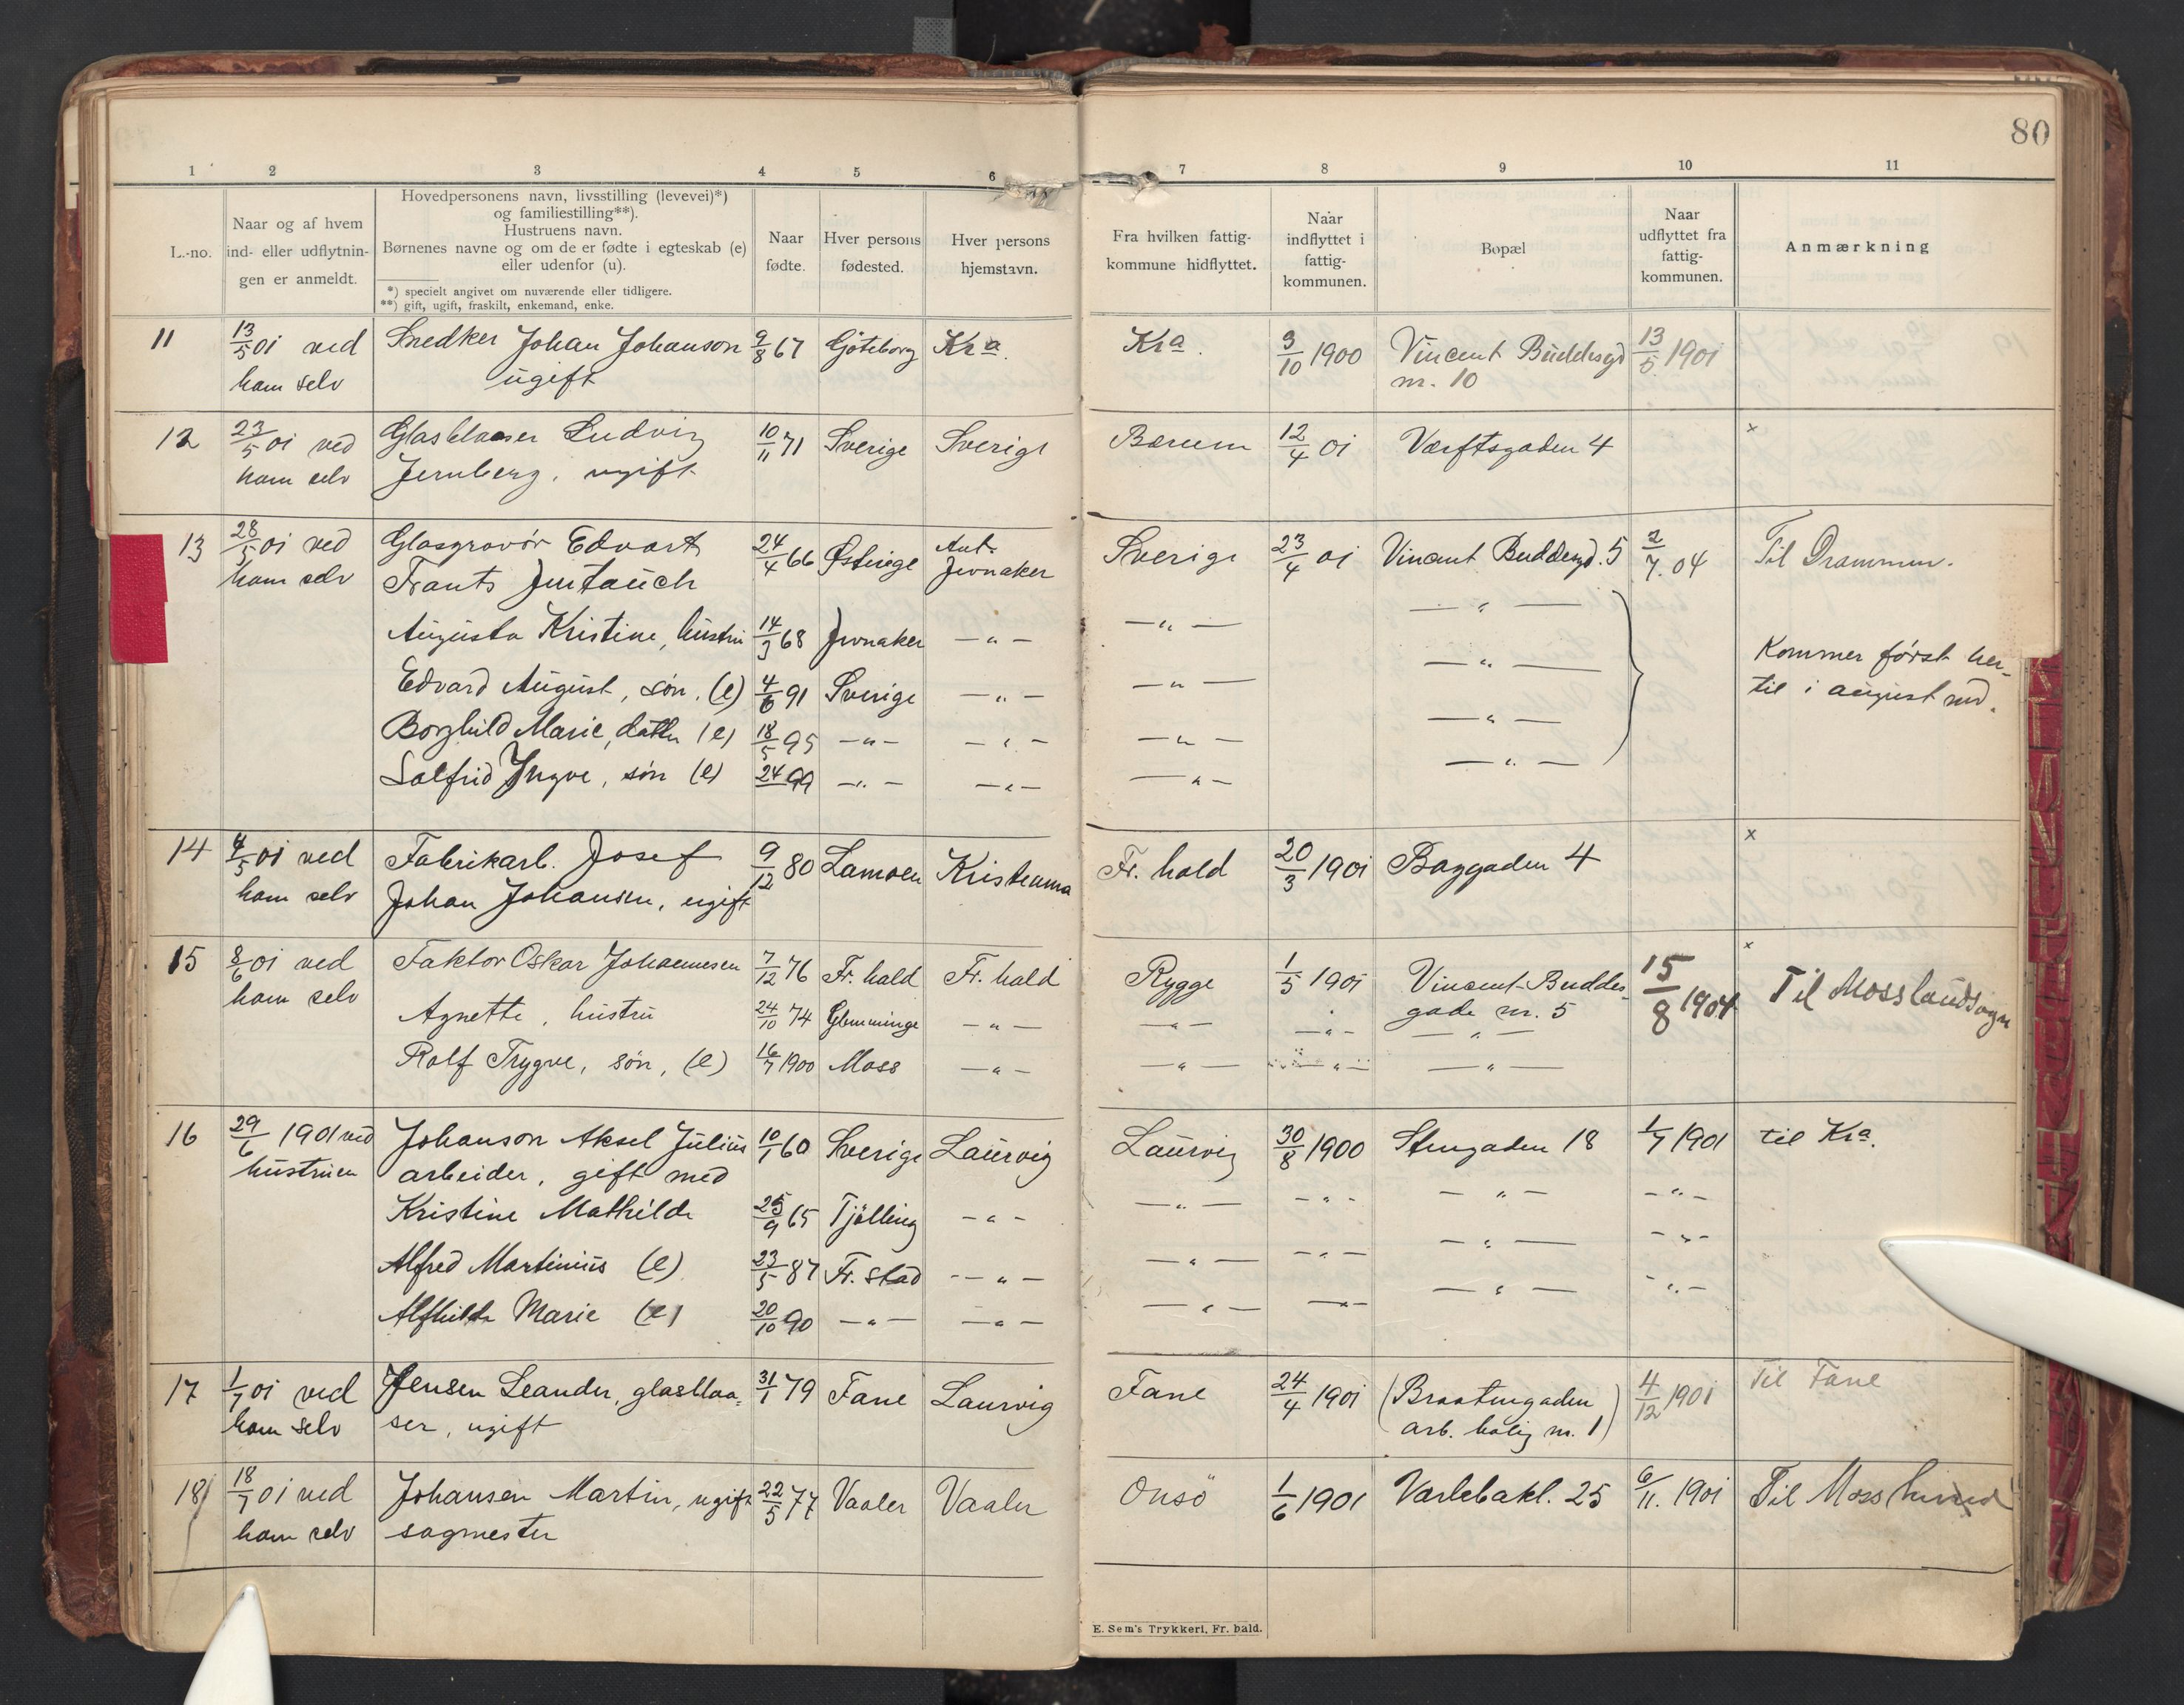 80
1 2 3 4 5 6 7 8 9 10 11
L.-no.
Naar og af hvem
ind- eller udflytnin-
gen er anmeldt.
Hovedpersonens navn, livsstilling (levevei)*)
og familiestilling**).
Hustruens navn.
Børnenes navne og om de er fødte i egteskab (e)
eller udenfor (u).
*) specielt angivet om nuværende eller tidligere.
**) gift, ugift, fraskilt, enkemand, enke.
Naar
fødte.
Hver persons
fødested.
Hver persons
hjemstavn.
Fra hvilken fattig-
kommune hidflyttet.
Naar
indflyttet i
fattig-
kommunen.
Bopæl
Naar
udflyttet fra
fattig-
kommunen.
Anmærkning
11 13/5 01 ved Snedker Johan Johanson 9/8 67 Göteborg Kra. Kra. 3/10 1900 Vincent Buddesgd 13/5 1901
ham selv ugift nr. 10
12 23/5 01 ved Glasblaaser Ludvig 10/11 71 Sverige Sverige Bærum 12/4 01 Værftsgaden 4 x
ham selv Jernberg, ugift
13 28/5 01 ved Glasgravör Edvart 24/4 66 Østerige Ant. Sverige 23/4 01 Vincent Buddesgd. 5 2/7. 04 Til Drammen.
ham selv Frants Jevnaker
— " —
Augusta Kristine, hustru 14/3 68 Jevnaker — " — — " —
— " — Kommer først her-
Edvard August, søn, (e) 4/6 91 Sverige — " — — " — til i august md.
Borghild Marie, datter (e) 18/5 95 — " — — " — — " — — " —
Solfrid Yngve, søn (e) 24 99 — " — — " — — " — — " —
14 4/5 01 ved Fabrikarb. Josef 9/12 80 Kristiania Fr. hald 20/3 1901 Baggaden 4 x
ham selv Johan Johansen, ugift
15 8/6 01 ved Faktor Oskar Johannesen 7/12 76 Fr. hald Fr. hald Rygge 1/5 1901 Vincent Buddes- 15/8 1904 x Til Moss landsogn
ham selv Agnette, hustru 24/10 74 Glemminge — " — — " — — " — gade nr. 5
— " —
Rolf Trygve, søn, (e) 16/7 1900 Moss — " — — " — — " — — " —
16 29/6 1901 ved Johanson Aksel Julius 10/1 60 Sverige Laurvig Laurvig 30/8 1900 Stengaden 18 1/7 1901 til Kra.
hustruen arbeider, gift med
Kristine Mathilde 25/9 65 Tjølling — " — — " — — " — — " — — " —
Alfred Martinius (e) 23/5 87 Fr. stad — " — — " — — " — — " — — " —
Alfhilda Marie (e) 20/10 90 — " — — " — — " — — " — — " — — " —
17 1/7 01 ved Jensen Leander, glasblaa- 31/1 79 Fane Laurvig Fane 24/4 1901 (Braatengaden 4/12 1901 Til Fane
ham selv ser, ugift arb. bolig nr. 1)
18 18/7 01 ved Johansen Martin, ugift 22/5 77 Vaaler Vaaler Onsö 1/6 1901 Varlebakl. 25 6/11. 1901 Til Moss
ham selv sagmester
E. Sem's Trykkeri, Fr. hald.